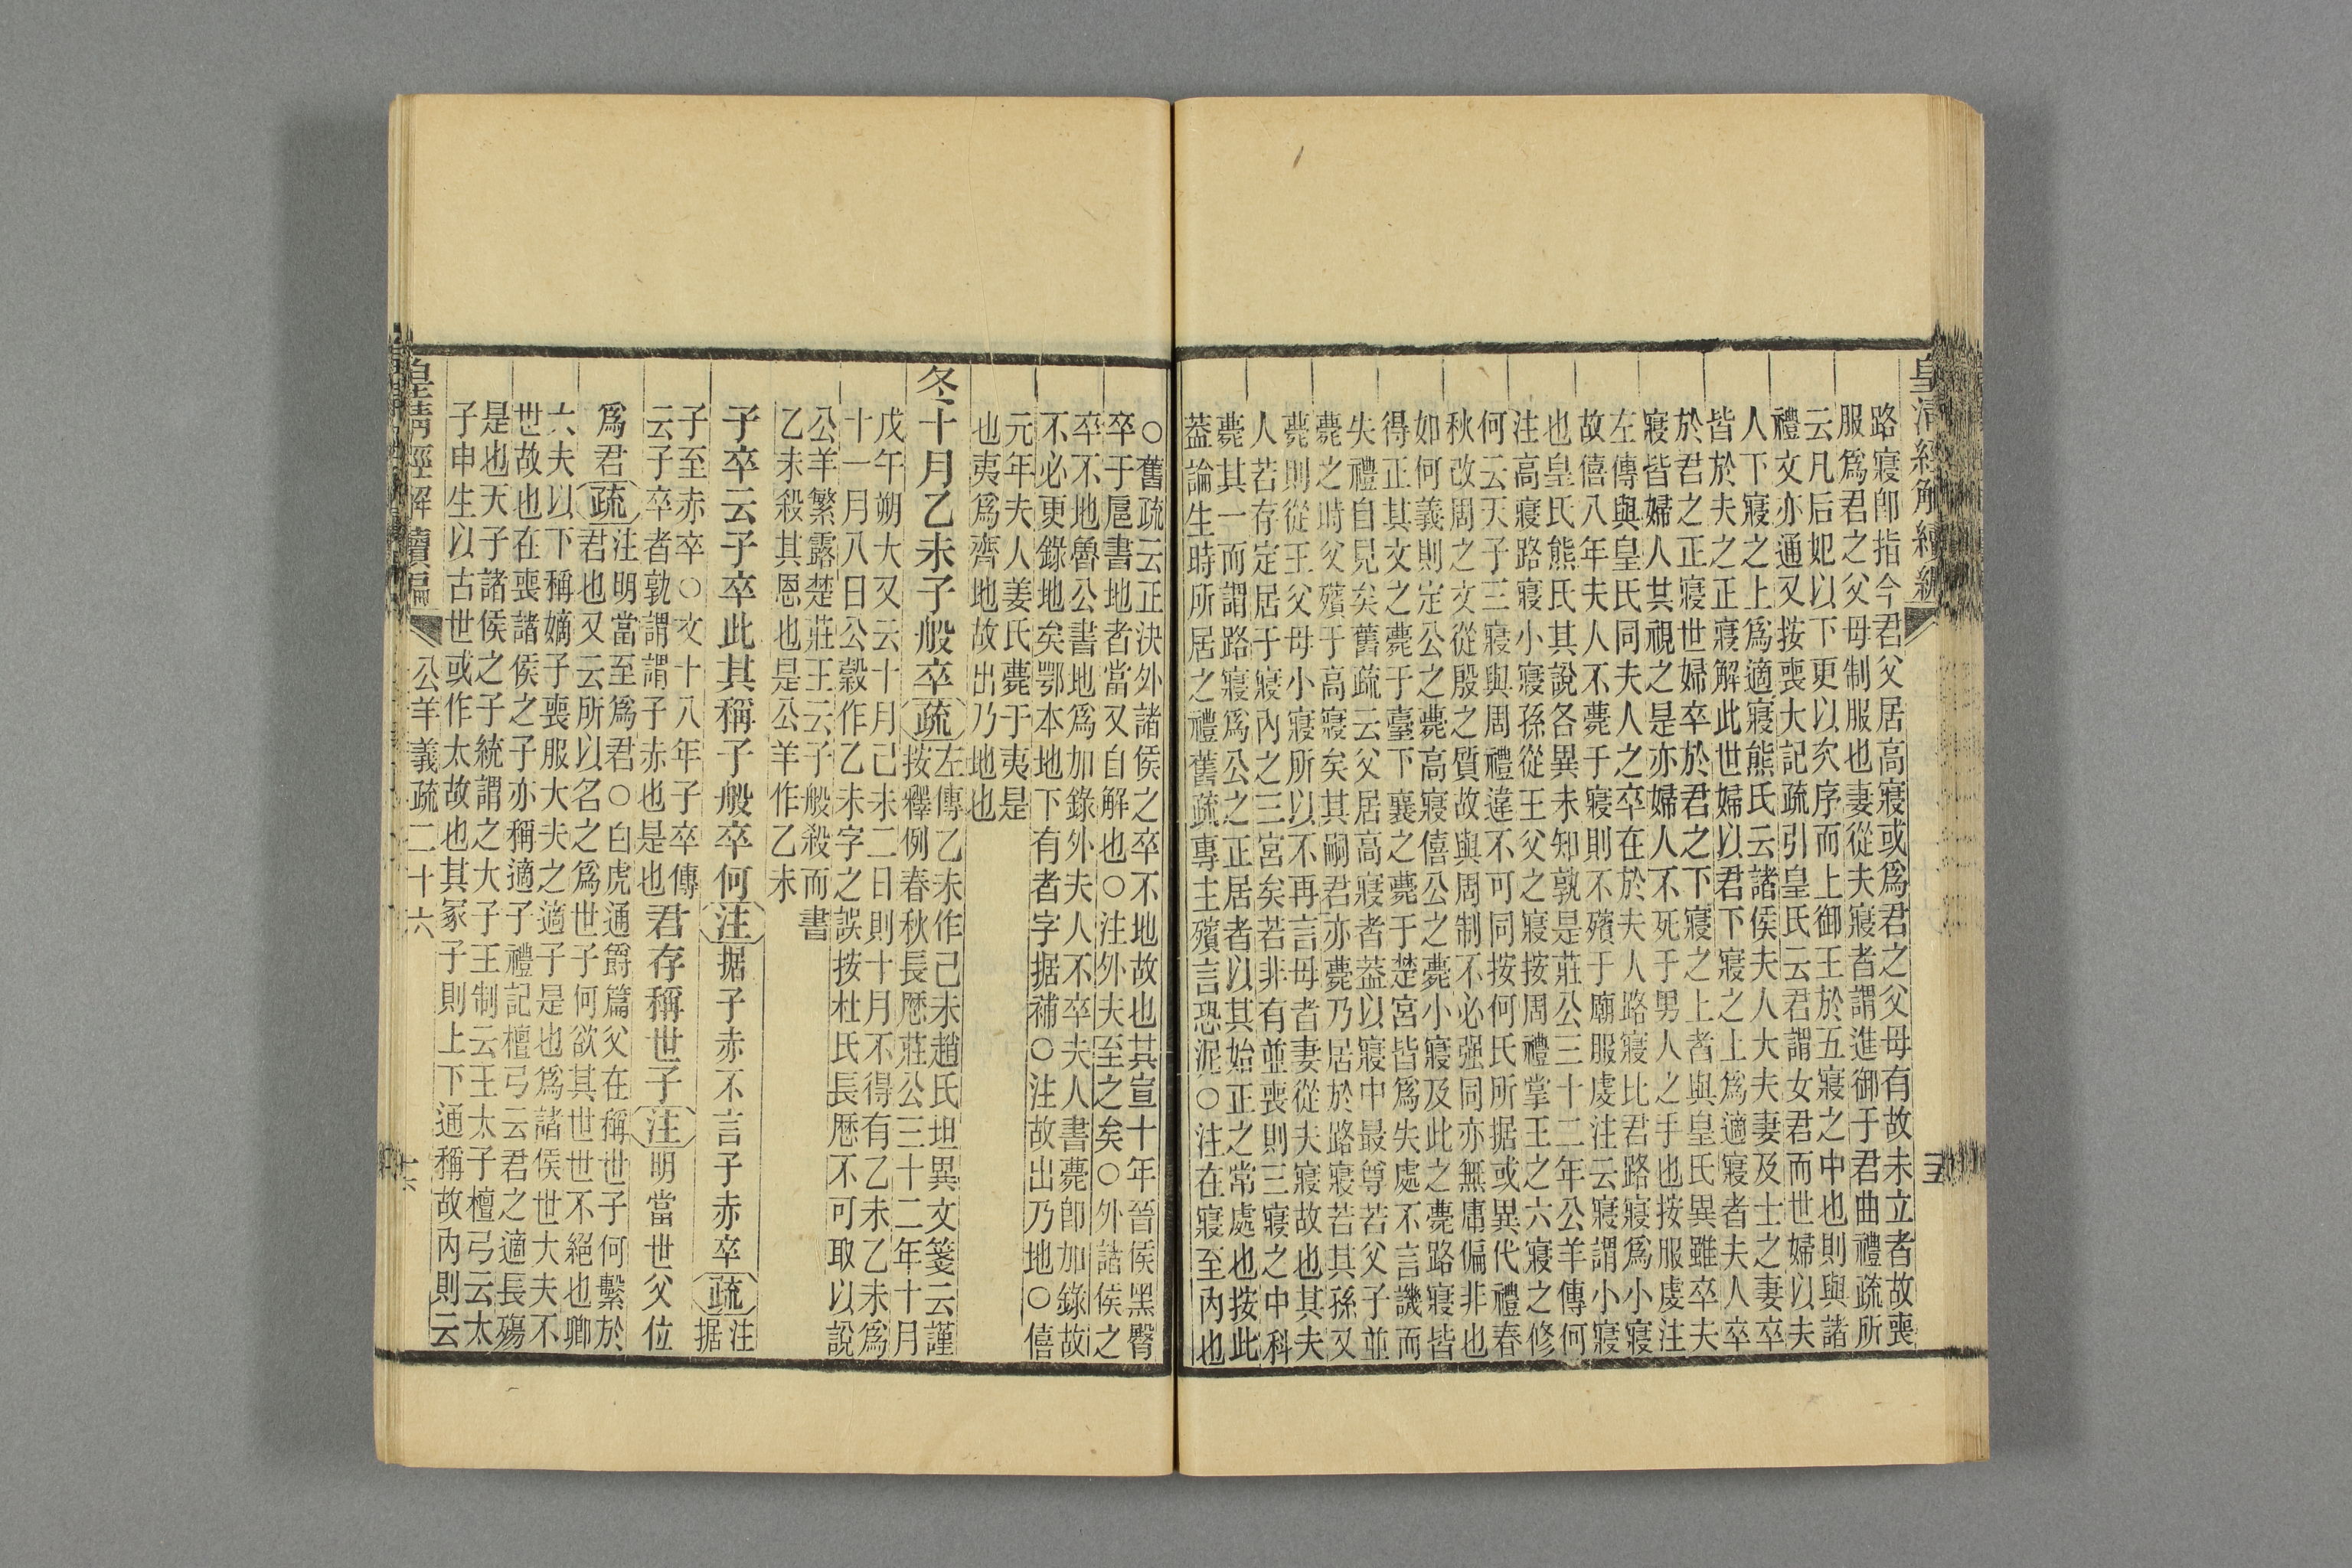 皇清經解續編
路寢卽指今君父居高寢或爲君之父母有故未立者故喪
服爲君之父母制服也妻從夫寢者謂進御于君曲禮疏所
云凡后妃以下更以次序而上御王於五寢之中也則與諸
禮文亦通又按喪大記疏引皇氏云君謂女君而世婦以夫
人下寢之上爲適寢熊氏云諸侯夫人大夫妻及士之妻卒
皆於夫之正寢解此世婦以君下寢之上爲適寢者夫人卒
於君之正寢世婦卒於君之下寢之上者與皇氏異雖卒夫
寢皆婦人其視之是亦婦人不死于男人之手也按服虔注
左傳與皇氏同夫人之卒在於夫人路寢比君路寢爲小寢
故僖八年夫人不薨于寢則不殯于廟服虔注云寢謂小寢
也皇氏熊氏其說各異未知孰是莊公三十二年公羊傳何
注高寢路寢小寢孫從王父之寢按周禮掌王之六寢之修
何云天子三寢與周禮違不可同按何氏所据或異代禮春
秋改周之文從殷之質故與周制不必强同亦無庸偏非也
如何義則定公之薨高寢僖公之薨小寢及此之薨路寢皆
得正其文之薨于臺下襄之薨于楚宮皆爲失處不言譏而
失禮自見矣舊疏云父居高寢者葢以寢中最尊若父子並
薨之時父殯于高寢矣其嗣君亦薨乃居於路寢若其孫又
薨則從王父母小寢所以不再言母者妻從夫寢故也其夫
人若存定居于寢內之三宮矣若非有並喪則三寢之中科
薨其一而謂路寢爲公之正居者以其始正之常處也按此
葢論生時所居之禮舊疏專主殯言恐泥○注在寢至內也
○舊疏云正決外諸侯之卒不地故也其宣十年晉侯黑臀
卒于扈書地者當又自解也○注外夫至之矣○外諸侯之
卒不地魯公書地爲加錄外夫人不卒夫人書薨卽加錄故
不必更錄地矣鄂本地下有者字据補○注故出乃地○僖
元年夫人姜氏薨于夷是
也夷爲齊地故出乃地也
冬十月乙未子般卒疏
左傳乙未作己未趙氏坦異文箋云謹
按釋例春秋長厯莊公三十二年十月
戊午朔大又云十月己未二日則十月不得有乙未乙未爲
十一月八日公穀作乙未字之誤按杜氏長厯不可取以說
公羊繁露楚莊王云子般殺而書
乙未殺其恩也是公羊作乙未
子卒云子卒此其稱子般卒何注据子赤不言子赤卒疏
注
据
子至赤卒○文十八年子卒傳
云子卒者孰謂謂子赤也是也
君存稱世子注明當世父位
爲君疏
注明當至爲君○白虎通爵篇父在稱世子何繫於
君也又云所以名之爲世子何欲其世世不絕也卿
大夫以下稱嫡子喪服大夫之適子是也爲諸侯世大夫不
世故也在喪諸侯之子亦稱適子禮記檀弓云君之適長殤
是也天子諸侯之子統謂之大子王制云王太子檀弓云太
子申生以古世或作太故也其冢子則上下通稱故內則云
皇淸經解續編
公羊義疏二十六
十六